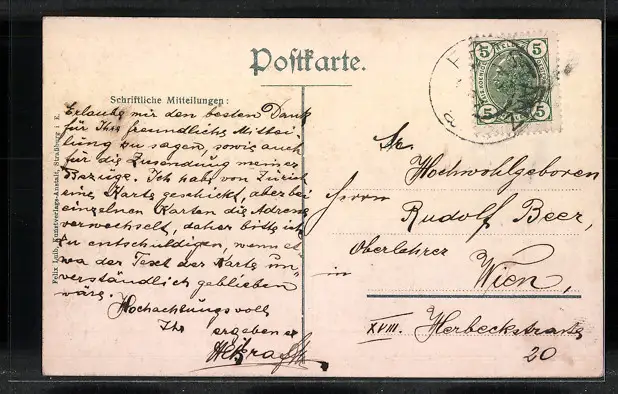 Postkarte.
Schriftliche Mitteilungen:
Erlaube mir den besten Dank
für Ihre freundliche Mittei-
lung zu sagen, sowie auch
für die Zusendung meiner
Bezüge. Ich habe von Zürich
eine Karte geschickt, aber bei
einzelnen Karten die Adresse
verwechselt, daher bitte ich
zu entschuldigen, wenn et-
wa der Text der Karte un-
verständlich geblieben
wäre.
Hochachtungsvoll
Ihr ergebener
Felix Luib, Kunstverlags-Anstalt, Straßburg i. E.
5 5
5 5
Sr.
Hochwohlgeboren
Herrn
Rudolf Beer,
Oberlehrer
in Wien,
XVIII. Herbeckstraße
20